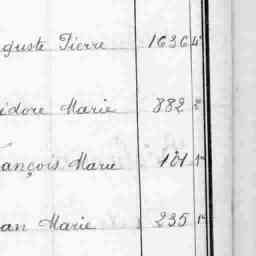 guste Pierre 1636 4
idore Marie 882 2
ançois Marie 101 1
an Marie 235 1